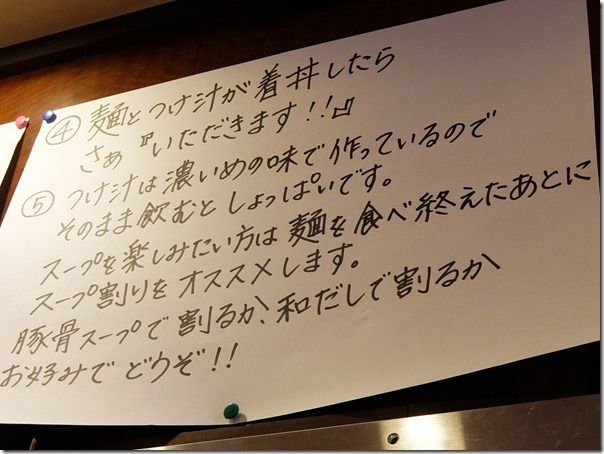 ④ 麺とつけ汁が着丼したら
さぁ『いただきます!!』
⑤ つけ汁は濃いめの味で作っているので
そのまま飲むとしょっぱいです。
スープを楽しみたい方は麺を食べ終えたあとに
スープ割りをオススメします。
豚骨スープで割るか、和だしで割るか
お好みでどうぞ!!